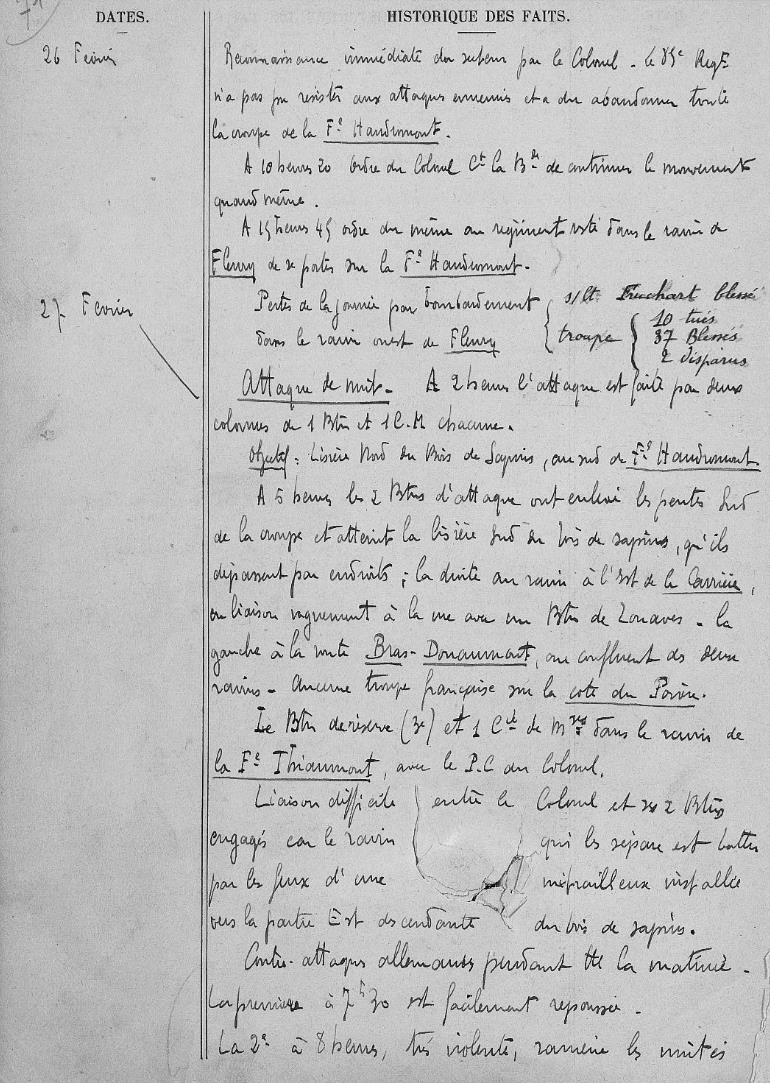 DATES.
HISTORIQUE DES FAITS.
26 Fevrier
Reconnaissance immédiate du secteur par le Colonel - le 85e Regt
n'a pas pu resister aux attaques ennemis et a du abandonner toute
la croupe de la Fe Haudromont.
A 10 heures 20 Ordre du Colonel Ct la Bde de continuer le mouvement
quand même.
A 15 heures 45 ordre du même au regiment resté dans le ravin de
Fleury de se porter sur la Fe Haudromont.
27 Fevrier
Pertes de la journée par bombardement
dans le ravin ouest de Fleury
s/lt Truchart blessé
troupe
10 tués
37 Blessés
2 disparus
Attaque de nuit. A 2 heures l'attaque est faite par deux
colonnes de 1 Btn et 1 C.M chacune.
Objectif : Lisière Nord du Bois de Sapins, au sud de Fe Haudromont
A 5 heures les 2 Btns d'attaque ont enlevé les pentes Sud
de la croupe et atteint la lisière Sud du bois de sapins, qu'ils
depassent par endroits ; la droite au ravin à l'Est de la Carrière,
en liaison vaguement à la vue avec un Btn de Zouaves - la
gauche à la route Bras-Douaumont, au confluent des deux
ravins - Aucune troupe française sur la cote du Poivre.
Le Btn de réserve (3e) et 1 Cie de Mses dans le ravin de
la Fe Thiaumont, avec le P.C du Colonel.
Liaison difficile entre le Colonel et ses 2 Btns
engagés car le ravin qui les sépare est battu
par les feux d'une mitrailleuse installée
vers la partie Est descendante du bois de sapins.
Contre-attaques allemandes pendant tte la matinée -
La première à 7h30 est facilement repoussée -
La 2e à 8 heures, très violente, ramène les unités